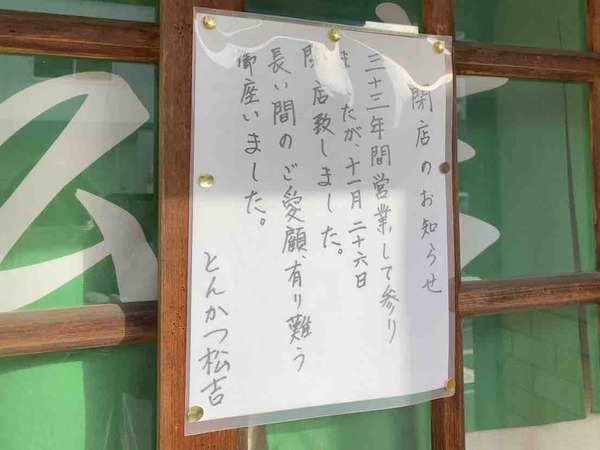 閉店のお知らせ
三十三年間営業して参り
ましたが、十一月二十六日
閉店致しました。
長い間のご愛顧、有り難う
御座いました。
とんかつ松吉